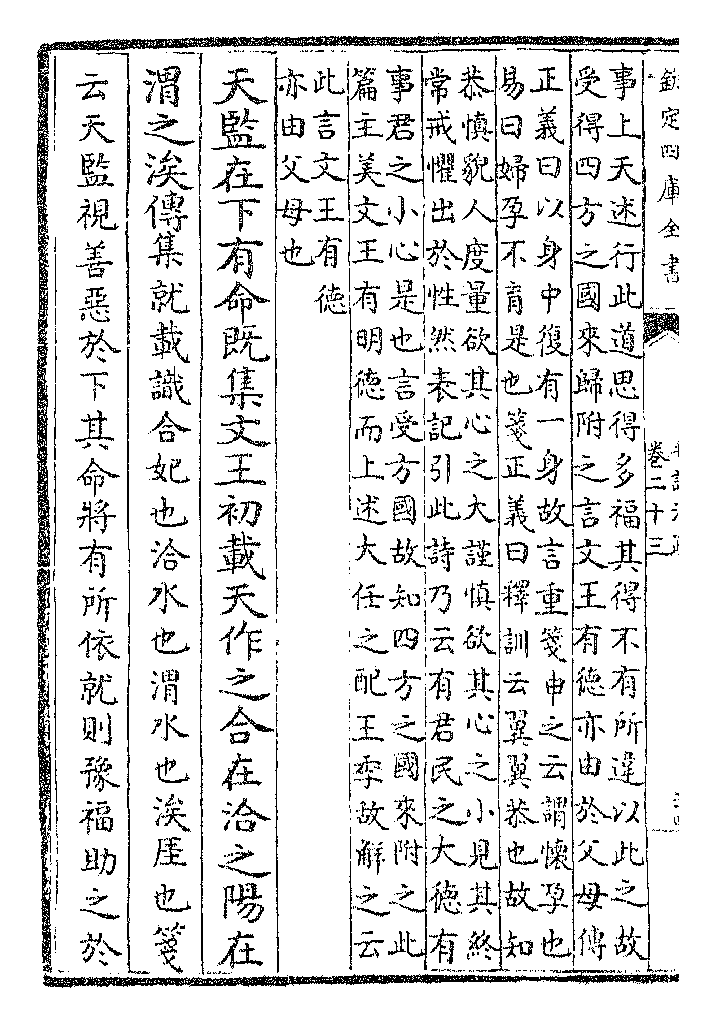 欽定四庫全書
卷二十三
事上天述行此道思得多福其得不有所違以此之故
受得四方之國來歸附之言文王有德亦由於父母傳
正義曰以身中復有一身故言重箋申之云謂懷孕也
易曰婦孕不育是也箋正義曰釋訓云翼翼恭也故知
恭慎貌人度量欲其心之大謹慎欲其心之小見其終
常戒懼出於性然表記引此詩乃云有君民之大德有
事君之小心是也言受方國故知四方之國來附之此
篇主美文王有明德而上述大任之配王季故解之云
此言文王有德
亦由父母也
天監在下有命既集文王初載天作之合在洽之陽在
渭之涘傳集就載識合妃也洽水也渭水也涘厓也箋
云天監視善惡於下其命將有所依就則豫福助之於